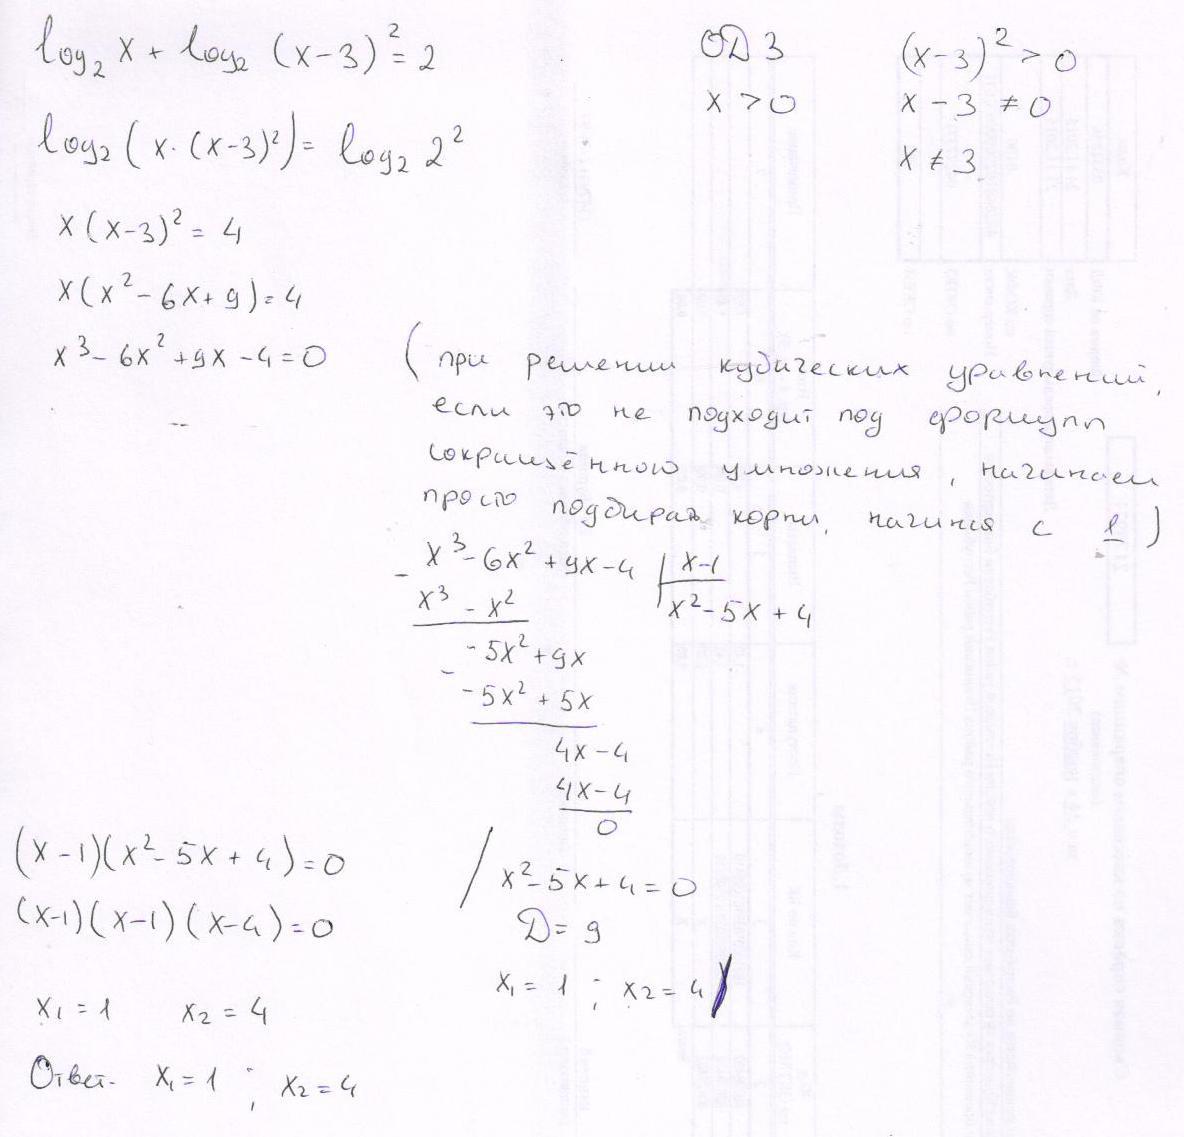 log₂ x + log₂ (x-3)² = 2
log₂ (x · (x-3)²) = log₂ 2²
x(x-3)² = 4
x(x² - 6x + 9) = 4
x³ - 6x² + 9x - 4 = 0
ОДЗ
x > 0
(x-3)² > 0
x - 3 ≠ 0
x ≠ 3
(при решении кубических уравнений,
если это не подходит под формулы
сокращённого умножения, начинаем
просто подбирать корни, начиная с 1)
x³ - 6x² + 9x - 4 | x-1
x³ - x² x² - 5x + 4
- 5x² + 9x
- 5x² + 5x
4x - 4
4x - 4
0
(x-1)(x² - 5x + 4) = 0
(x-1)(x-1)(x-4) = 0
/ x² - 5x + 4 = 0
D = 9
x₁ = 1 ; x₂ = 4 /
x₁ = 1 x₂ = 4
Ответ. x₁ = 1 ; x₂ = 4